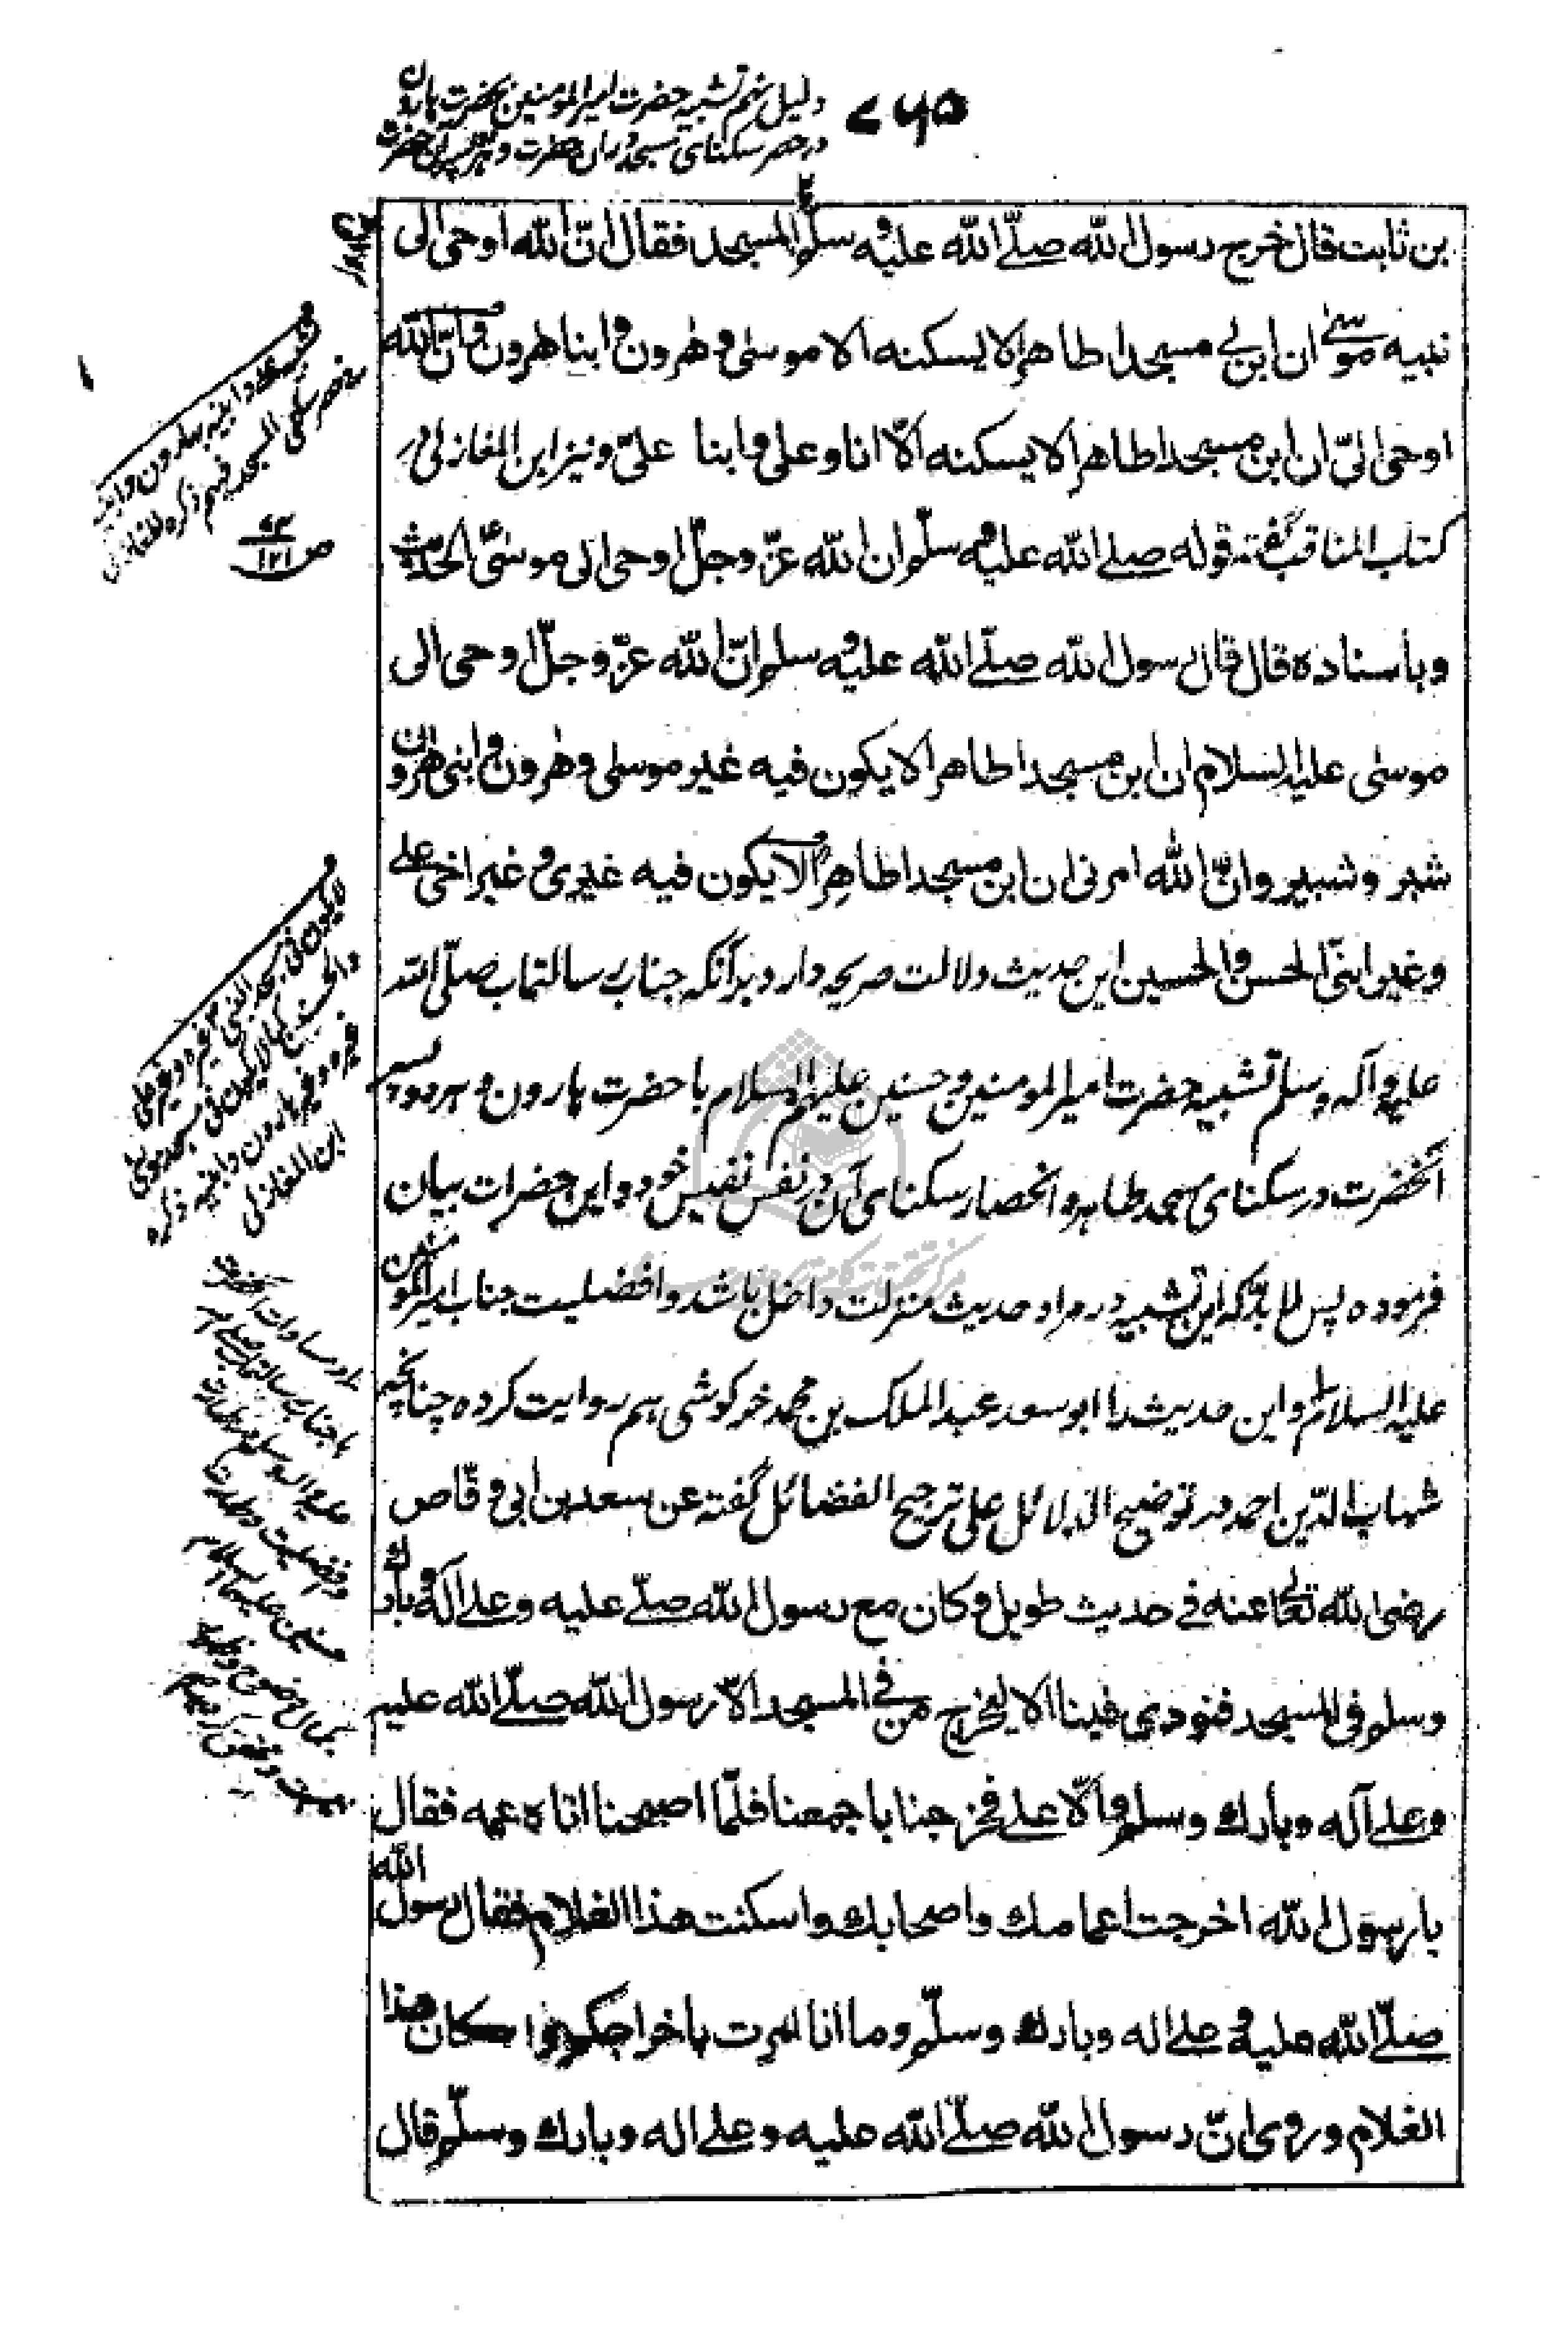 دلیل نهم تشبیه حضرت امیرالمومنین بحضرت هارون
در حصر سکنای مسجد در ان حضرت و هر دو پسر آن حضرت
۷۶۵
بن ثابت قال خرج رسول الله صلّے الله علیه و سلّم الی المسجد فقال انّ الله اوحی الی
نبیه موسی ان ابن لی مسجدا طاهرا لا یسکنه الا موسی و هرون و ابنا هرون و انّ الله
اوحی الیّ ان ابن مسجدا طاهرا لا یسکنه الّا انا و علی و ابنا علیّ و نیز ابن المغازلی در
کتاب المناقب گفته قوله صلے الله علیه و سلّم ان الله عزّ و جلّ اوحی الی موسیٰ الحدیث
و باسناده قال قال رسول الله صلّے الله علیه و سلم انّ الله عزّ و جلّ اوحی الی
موسی علیه السلام ان ابن مسجدا طاهرا لا یکون فیه غیر موسی و هرون و ابنی هرون
شبر و شبیر و انّ الله امرنی ان ابن مسجدا طاهرا لا یکون فیه غیری و غیر اخی علے
و غیر ابنیّ الحسن و الحسین این حدیث دلالت صریحه دارد بر آنکه جناب رسالتماب صلّی الله
علیه و آله و سلم تشبیه حضرت امیر المومنین و حسنین علیهم السلام با حضرت هارون و هر دو پسر
آنحضرت در سکنای مسجد طاهر و انحصار سکنای آن در نفس نفیس خود و این حضرات بیان
فرموده پس لا بد که این تشبیه در مراد حدیث منزلت داخل باشد و افضلیت جناب امیر المومنین
علیه السلام و این حدیث را ابو سعد عبد الملک بن محمد خرکوشی هم روایت کرده چنانچه
شهاب الدّین احمد در توضیح الدلائل علی ترجیح الفضائل گفته عن سعد بن ابی وقّاص
رضی الله تعالی عنه فی حدیث طویل و کان مع رسول الله صلّے علیه و علے آله و بارك
و سلم فی المسجد فنودی فینا الا لیخرج من فی المسجد الّا رسول الله صلّے الله علیه
و علے آله و بارك و سلم و الّا علے فخرجنا باجمعنا فلمّا اصبحنا اتاه عمه فقال
یا رسول الله اخرجت اعمامك و اصحابك و اسکنت هذا الغلام فقال رسول الله
صلّے الله علیه و علے اله و بارك و سلّم و ما انا امرت باخراجکم و اسکان هذا
الغلام و روی انّ رسول الله صلّے الله علیه و علے اله و بارك و سلّم قال
لا یکون فی مسجد النبی غیره و غیر علی
و الحسنین کما لا یکون فی مسجد موسی
غیره و غیر هارون و ابنیه ذکره
ابن المغازلی